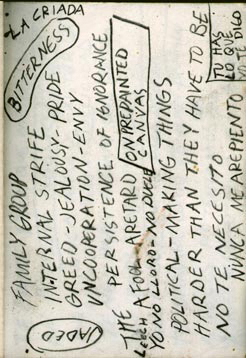 LA CRIADA
BITTERNESS
FAMILY GROUP
INTERNAL STRIFE
GREED-JEALOUSY-PRIDE
UNCOOPERATION-ENVY
PERSISTENCE OF IGNORANCE
THE
A FOOL
ARETARD
ON PREPAINTED
CANVAS
YO NO LLORO-NO DUELE
POLITICAL-MAKING THINGS
HARDER THAN THEY HAVE TO BE
NO TE NECESITO
NUNCA ME AREPIENTO
TU HAS
LO QUE
TE DIJO
JADED